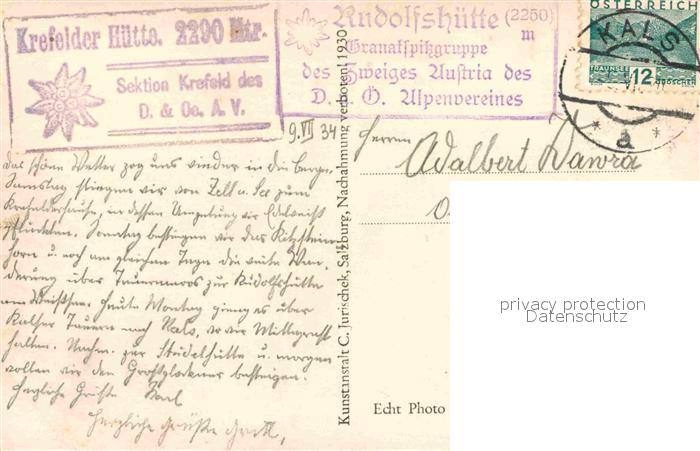 Krefelder Hütte. 2290 Mtr.
Sektion Krefeld des
D. & Oe. A. V.
Rudolfshütte (2250)
m
Granatspitzgruppe
des Zweiges Austria des
D. u. Ö. Alpenvereines
ÖSTERREICH
KALS
TRAUNSEE
12
GROSCHEN
a
9.VII 34
Das schöne Wetter zog uns wieder in die Berge.
Samstag stiegen wir von Zell a. See zum
Krefelderhaus, in dessen Umgebung wir Edelweiß
pflückten. Sonntag bestiegen wir das Kitzstein-
horn u. noch am gleichen Tage die weite Wan-
derung über Tauernmoos zur Rudolfshütte
am Weißsee. Heute Montag gieng es über
Kalser Tauern nach Kals, wo wir Mittagsrast
halten. Nachm. zur Stüdelhütte u. morgen
wollen wir den Großglockner besteigen.
Herzliche Grüße Karl
Herzliche Grüße
Herrn
Adalbert Dawra
Kunstanstalt C. Jurischek, Salzburg, Nachahmung verboten! 1930
Echt Photo
privacy protection
Datenschutz